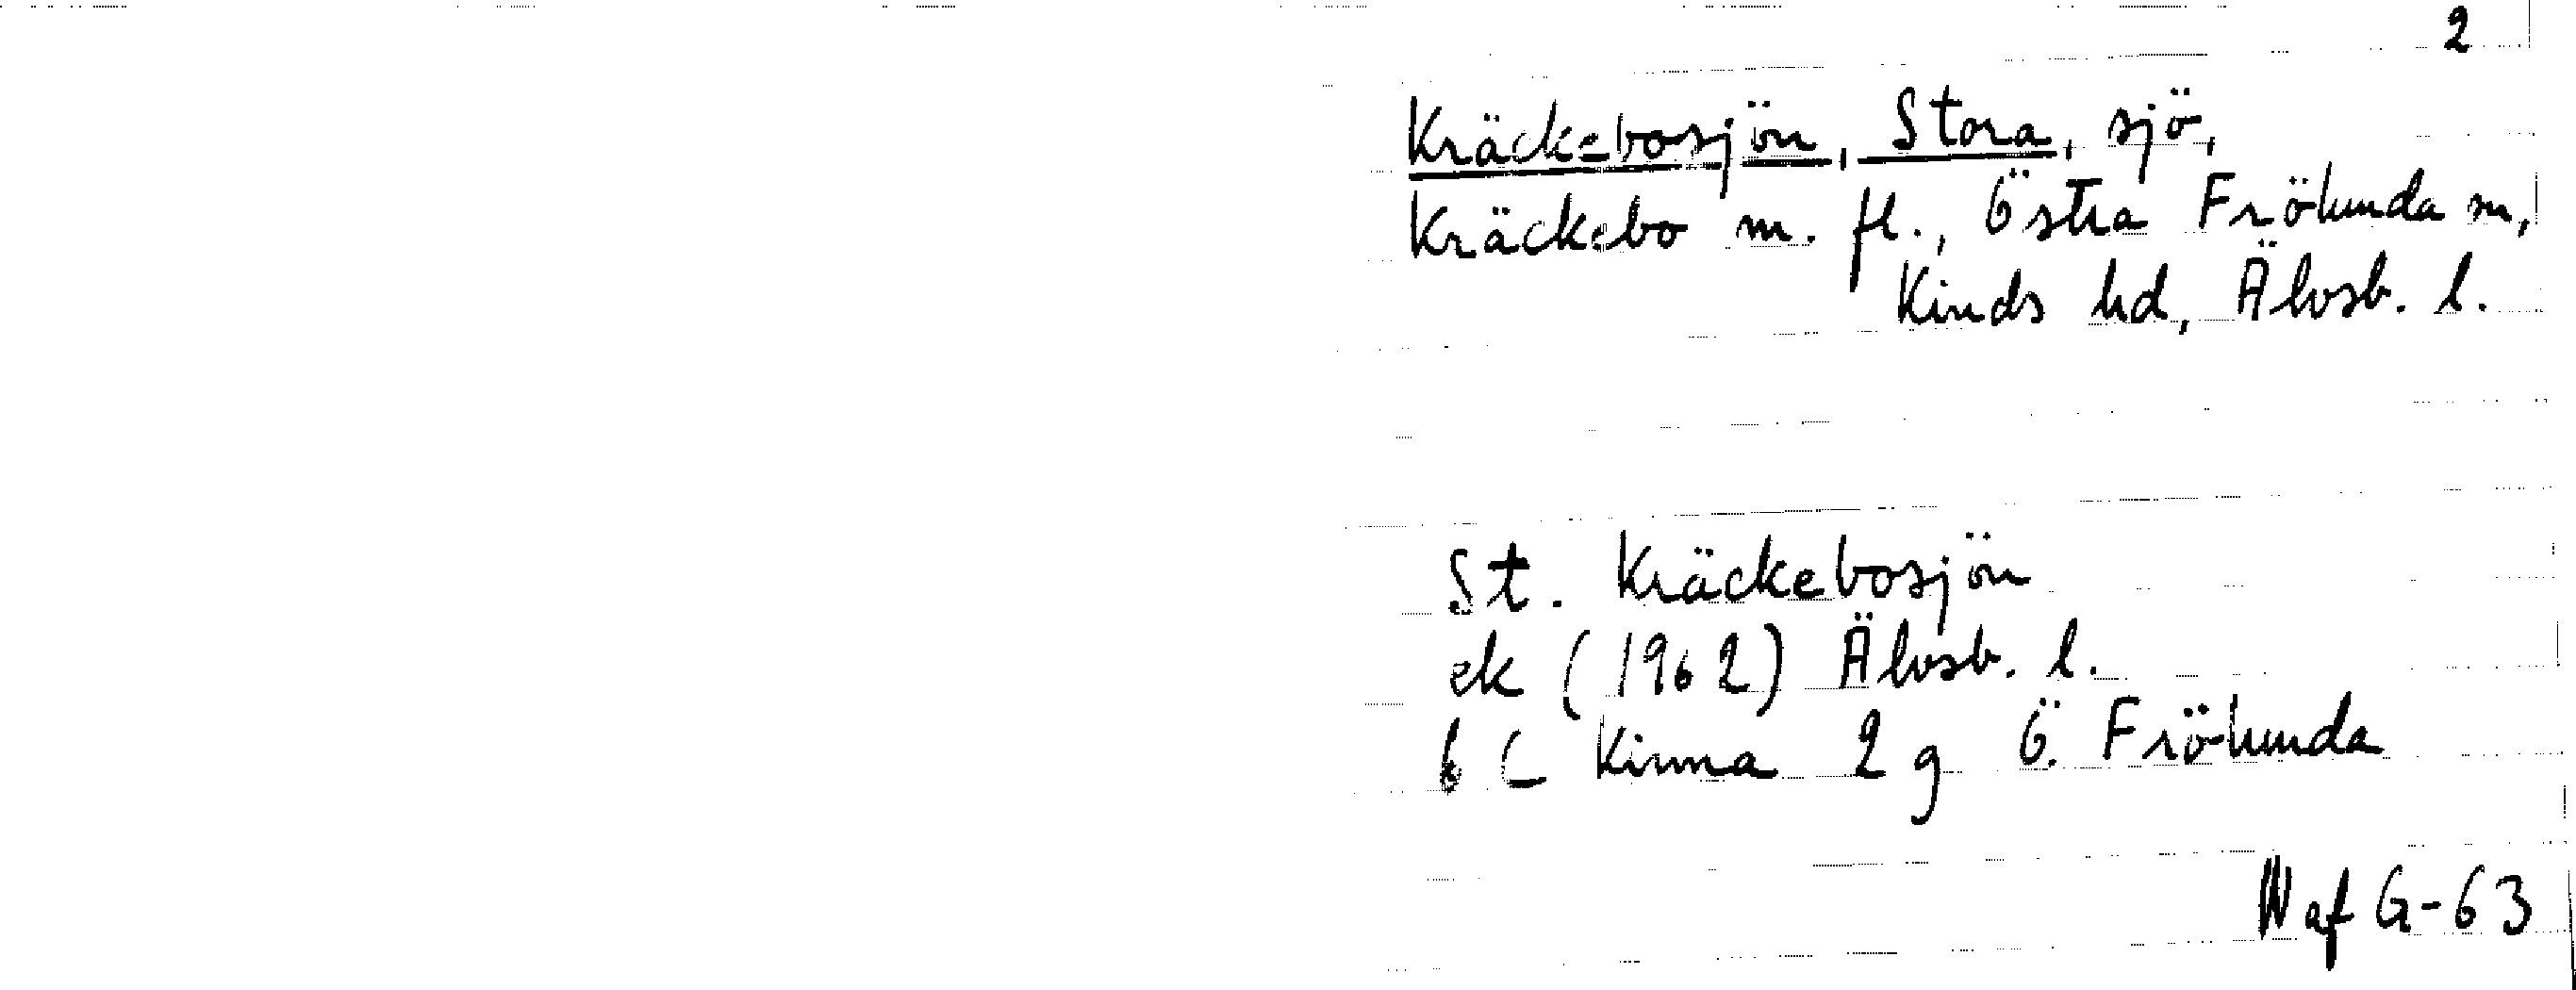 2
Kräckebosjön, Stora, sjö,
Kräckebo m. fl., Östra Frölunda sn,
Kinds hd, Älvsb. l.
St. Kräckebosjön
ek (1962) Älvsb. l.
6 C Kinna 2 g Ö. Frölunda
W af G-63